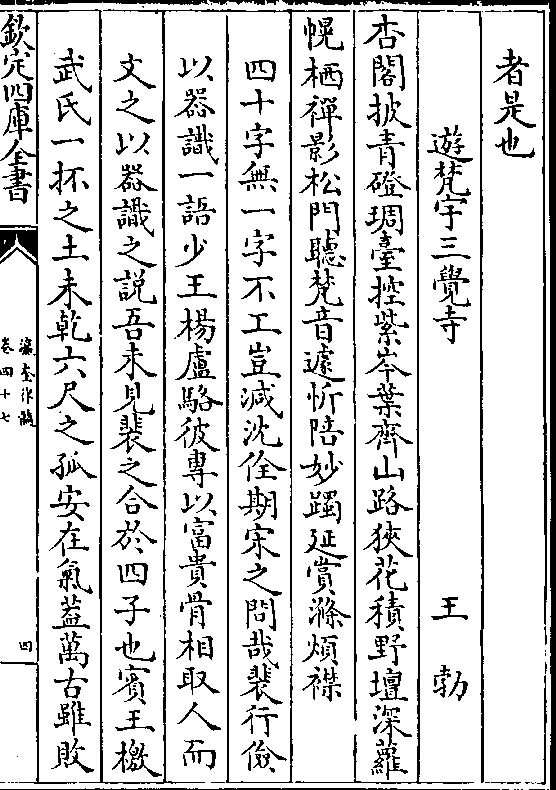 者是也
遊梵宇三覺寺　王勃
杏閣披青磴琱臺控紫岑葉齊山路狹花積野壇深蘿
幌栖禪影松門聽梵音遽忻陪妙躅延賞滌煩襟
四十字無一字不工豈減沈佺期宋之問哉裴行儉
以器識一語少王楊盧駱彼專以富貴骨相取人而
文之以器識之説吾未見裴之合於四子也賓王檄
武氏一抔之土未乾六尺之孤安在氣葢萬古雖敗
欽定四庫全書
瀛奎律髓
卷四十七
四